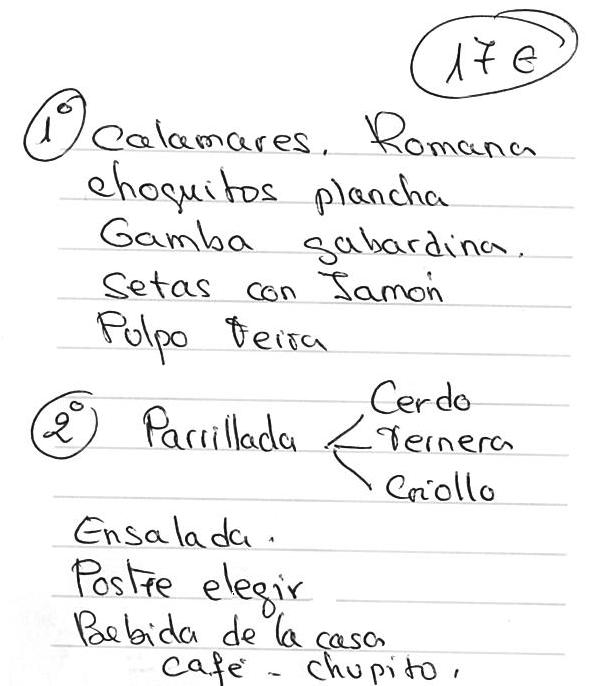 17€
1º Calamares. Romana
choquitos plancha
Gamba gabardina.
Setas con Jamón
Pulpo feira
2º Parrillada
Cerdo
Ternera
Criollo
Ensalada.
Postre elegir
Bebida de la casa
café - chupito.